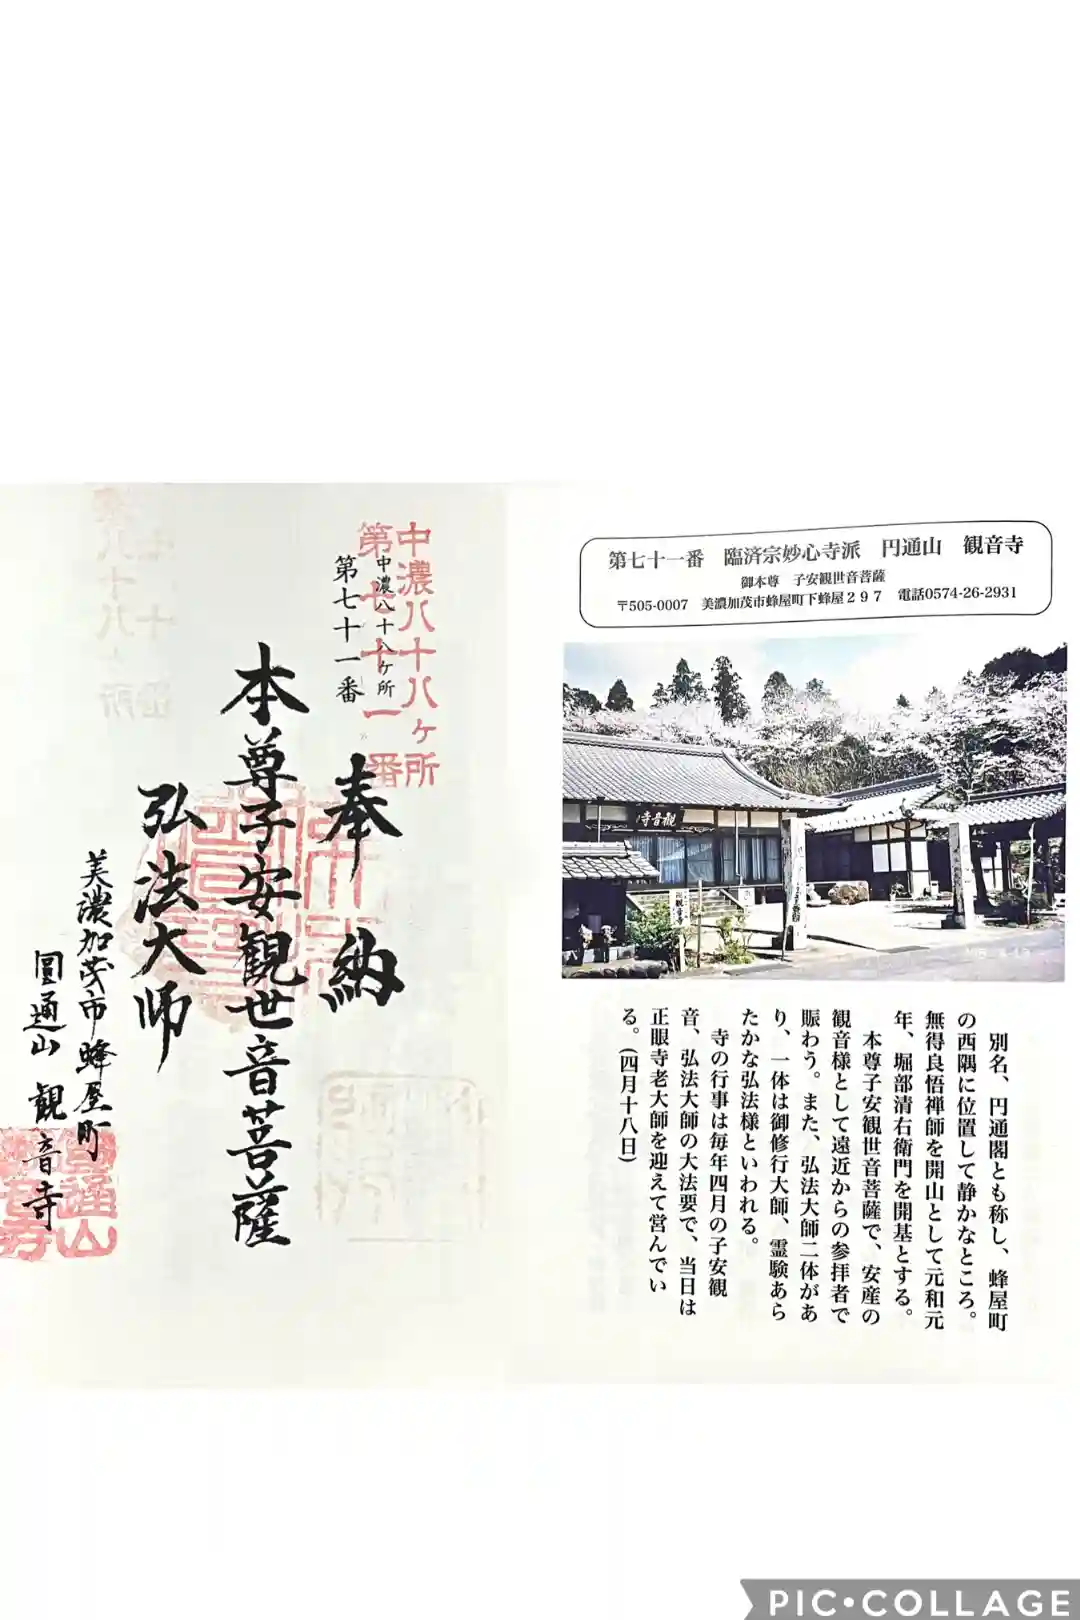 第七十一番 臨済宗妙心寺派 円通山 観音寺
御本尊 子安観世音菩薩
〒505-0007 美濃加茂市蜂屋町下蜂屋297 電話0574-26-2931
観音寺
別名、円通閣とも称し、蜂屋町
の西隅に位置して静かなところ。
無得良悟禅師を開山として元和元
年、堀部清右衛門を開基とする。
本尊子安観世音菩薩で、安産の
観音様として遠近からの参拝者で
賑わう。また、弘法大師二体があ
り、一体は御修行大師、霊験あら
たかな弘法様といわれる。
寺の行事は毎年四月の子安観
音、弘法大師の大法要で、当日は
正眼寺老大師を迎えて営んでい
る。(四月十八日)
中濃八十八ヶ所
第七十一番
中濃八十八ヶ所
第七十一番
奉納
本尊子安観世音菩薩
弘法大师
美濃加茂市蜂屋町
圓通山 観音寺
PIC•COLLAGE